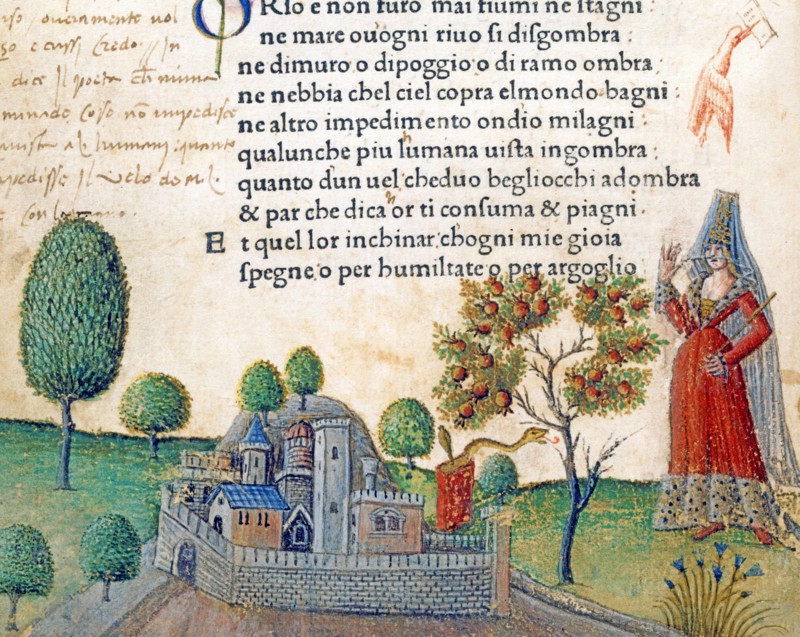 overamente vol
e cussi Credo. In
dice Il poeta
Cose non impedisce
humani quanto
Il Velo de M. L.
ORSO e non furo mai fiumi ne stagni:
ne mare ouogni riuo si disgombra:
ne dimuro o dipoggio o di ramo ombra:
ne nebbia chel ciel copra elmondo bagni:
ne altro impedimento ondio milagni:
qualunche piu lumana uista ingombra:
quanto dun uel cheduo begliocchi adombra
& par che dica or ti consuma & piagni.
Et quel lor inchinar.chogni mie gioia
spegne.o per humiltate o per argoglio